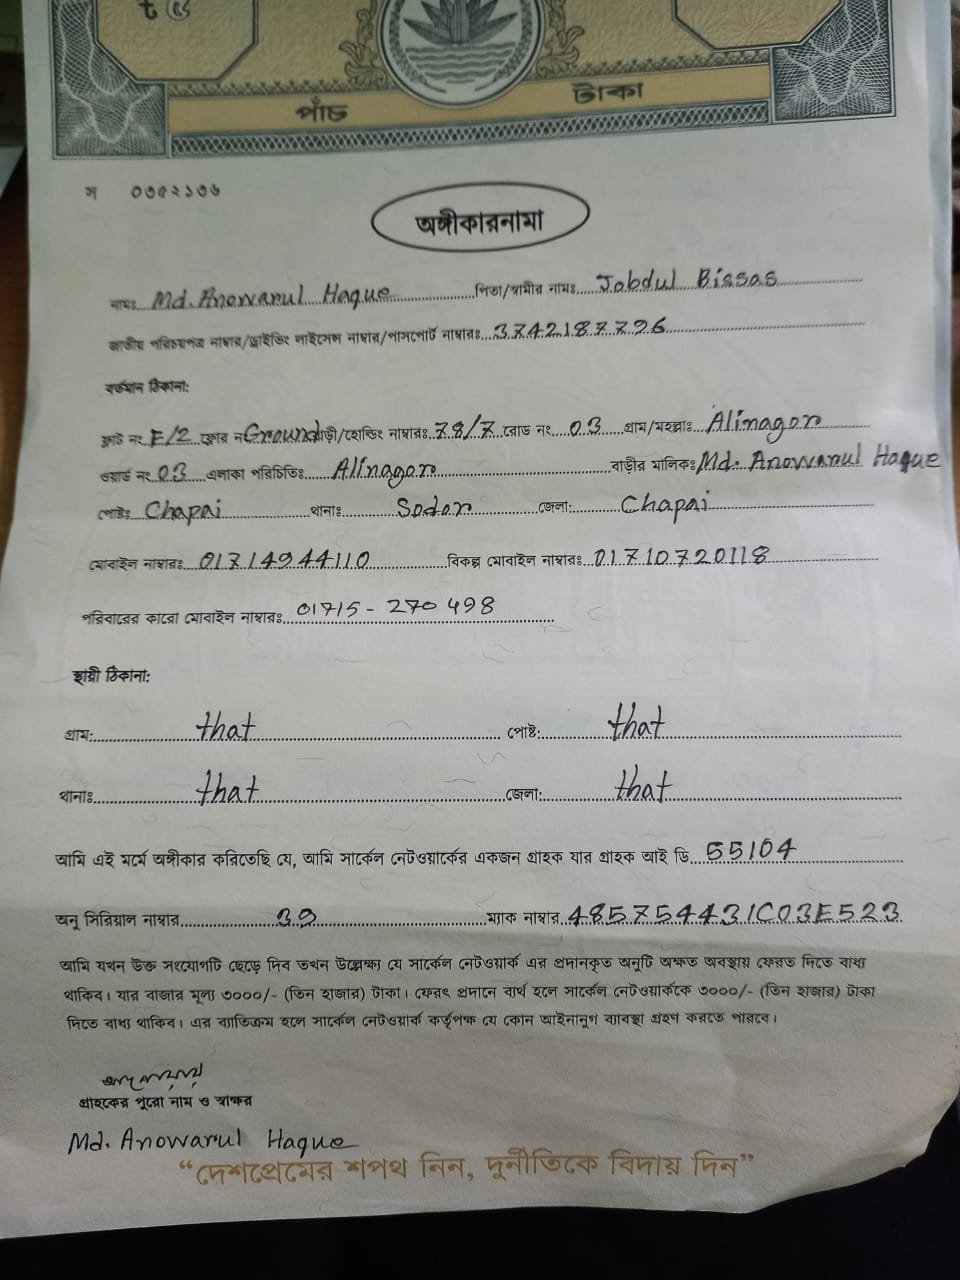 পাঁচ টাকা
স ০৩৫২১৩৬
অঙ্গীকারনামা
নামঃ Md. Anowarul Haque পিতা/স্বামীর নামঃ Jobdul Bissas
জাতীয় পরিচয়পত্র নাম্বার/ড্রাইভিং লাইসেন্স নাম্বার/পাসপোর্ট নাম্বারঃ 3742187796
বর্তমান ঠিকানা:
ফ্লাট নং F/2 ফ্লোর নং Ground বাড়ী/হোল্ডিং নাম্বারঃ 78/7 রোড নং 03 গ্রাম/মহল্লাঃ Alinagor
ওয়ার্ড নং 03 এলাকা পরিচিতিঃ Alinagor বাড়ীর মালিকঃ Md. Anowarul Haque
পোষ্টঃ Chapai থানাঃ Sodor জেলা: Chapai
মোবাইল নাম্বারঃ 01714944110 বিকল্প মোবাইল নাম্বারঃ 01710720118
পরিবারের কারো মোবাইল নাম্বারঃ 01715-270498
স্থায়ী ঠিকানা:
গ্রাম: that পোষ্ট: that
থানাঃ that জেলা: that
আমি এই মর্মে অঙ্গীকার করিতেছি যে, আমি সার্কেল নেটওয়ার্কের একজন গ্রাহক যার গ্রাহক আই ডি 55104
অনু সিরিয়াল নাম্বার 39 ম্যাক নাম্বার 485754431C03E523
আমি যখন উক্ত সংযোগটি ছেড়ে দিব তখন উল্লেক্ষ্য যে সার্কেল নেটওয়ার্ক এর প্রদানকৃত অনুটি অক্ষত অবস্থায় ফেরত দিতে বাধ্য
থাকিব। যার বাজার মূল্য ৩০০০/- (তিন হাজার) টাকা। ফেরৎ প্রদানে ব্যর্থ হলে সার্কেল নেটওয়ার্ককে ৩০০০/- (তিন হাজার) টাকা
দিতে বাধ্য থাকিব। এর ব্যাতিক্রম হলে সার্কেল নেটওয়ার্ক কর্তৃপক্ষ যে কোন আইনানুগ ব্যাবস্থা গ্রহণ করতে পারবে।
গ্রাহকের পুরো নাম ও স্বাক্ষর
Md. Anowarul Haque
“দেশপ্রেমের শপথ নিন, দুর্নীতিকে বিদায় দিন”